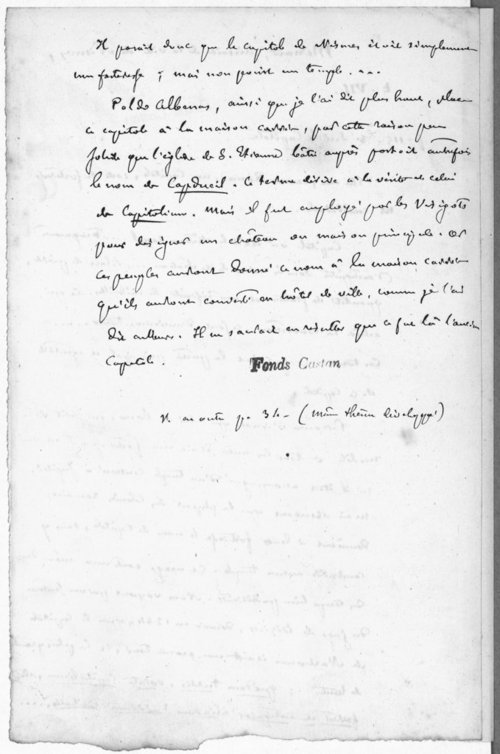 Il paroit donc que le capitole de Nismes étoit simplement
une forteresse ; mais non point un temple. ...
Poldo Albenas, ainsi que je l'ai dit plus haut, place
ce capitole à la maison carrée, par cette raison peu
solide que l'église de S. Etienne bâtie auprès portoit autrefois
le nom de Capdueil. Ce terme dérive à la vérité de celui
de Capitolium. Mais il fut employé par les Visigots
pour désigner un château ou maison principale. Or
ces peuples auront donné ce nom à la maison carrée
qu'ils auront convertie en hôtel de ville, comme je l'ai
dit ailleurs. Il ne sauroit en résulter que ce fut là l'ancien
Capitole.
Fonds Castan
V. en outre p. 34 - (Même thème développé)